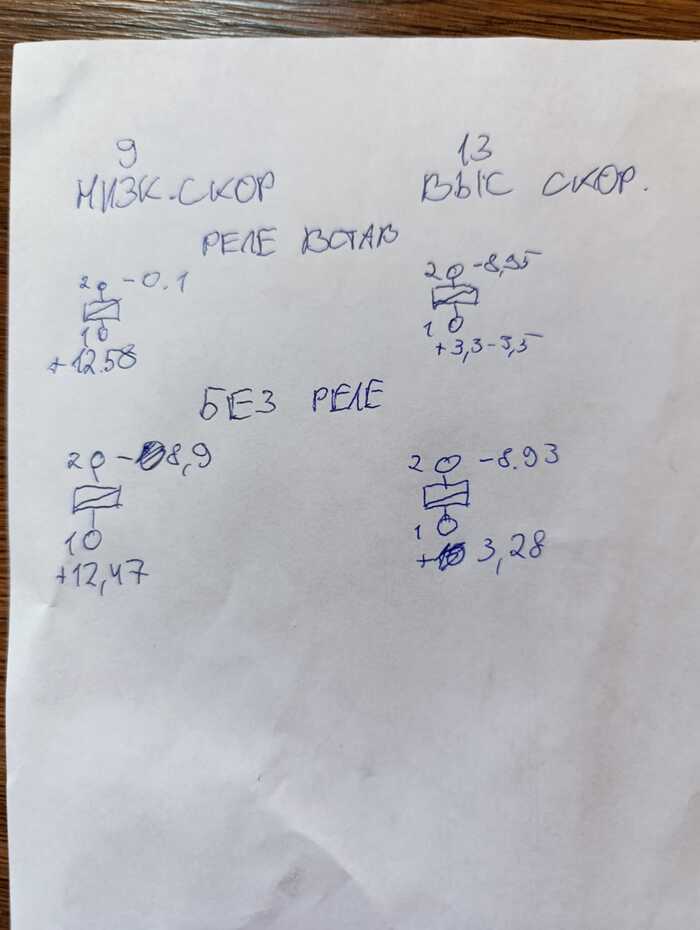 9
НИЗК.СКОР
13
ВЫС СКОР.
РЕЛЕ ВСТАВ
2 -0.1
1
+12.58
2 -8,95
1
+3,3-3,5
БЕЗ РЕЛЕ
2 -8,9
1
+12,47
2 -8.93
1
+ 3,28